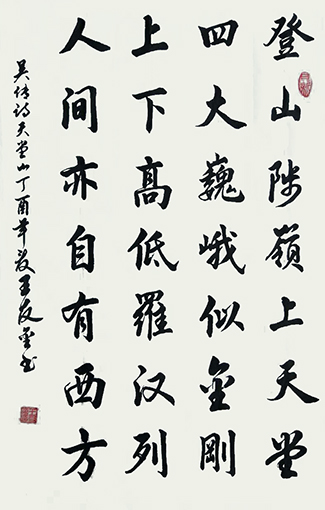 登山陟嶺上天堂
四大巍峨似金剛
上下髙低羅汉列
人间亦自有西方
吴诗天堂山丁酉年夏王友金书